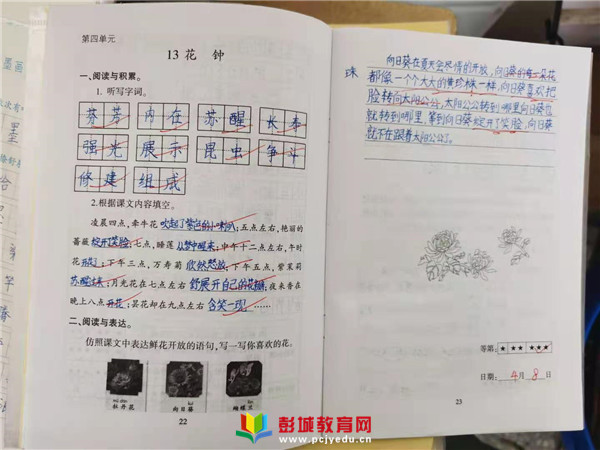 第四单元
13 花 钟
一、阅读与积累。
1. 听写字词。
芬芳 内在 苏醒 长奉
强光 展示 昆虫 争斗
修建 组成
2.根据课文内容填空。
凌晨四点,牵牛花吹起了紫色的小喇叭;五点左右,艳丽的
蔷薇绽开笑脸;七点,睡莲从梦中醒来;中午十二点左右,午时
花开放了;下午三点,万寿菊欣然怒放;下午五点,紫茉莉
苏醒过来;月光花在七点左右舒展开自己的花瓣;夜来香在
晚上八点开花;昙花却在九点左右含笑一现……
二、阅读与表达。
仿照课文中表达鲜花开放的语句,写一写你喜欢的花。
牡丹花 向日葵 蝴蝶兰
22
向日葵在夏天会尽情的开放,向日葵的每一朵花
都像一个个大大的黄珍株一样,向日葵喜欢把
珠
脸转向太阳公公,太阳公公转到哪里向日葵也
就转到哪里,等到向日葵绽开了笑脸,向日葵
就不在跟着太阳公公了。
等第:★★ ★★★
日期:4月8日
23
彭城教育网
www.pcjyedu.cn
墨画